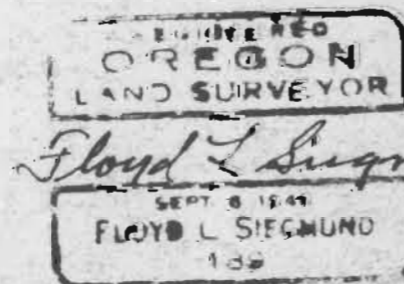 REGISTERED
OREGON
LAND SURVEYOR
Floyd L
SEPT. 8 1941
FLOYD L SIEGMUND
189